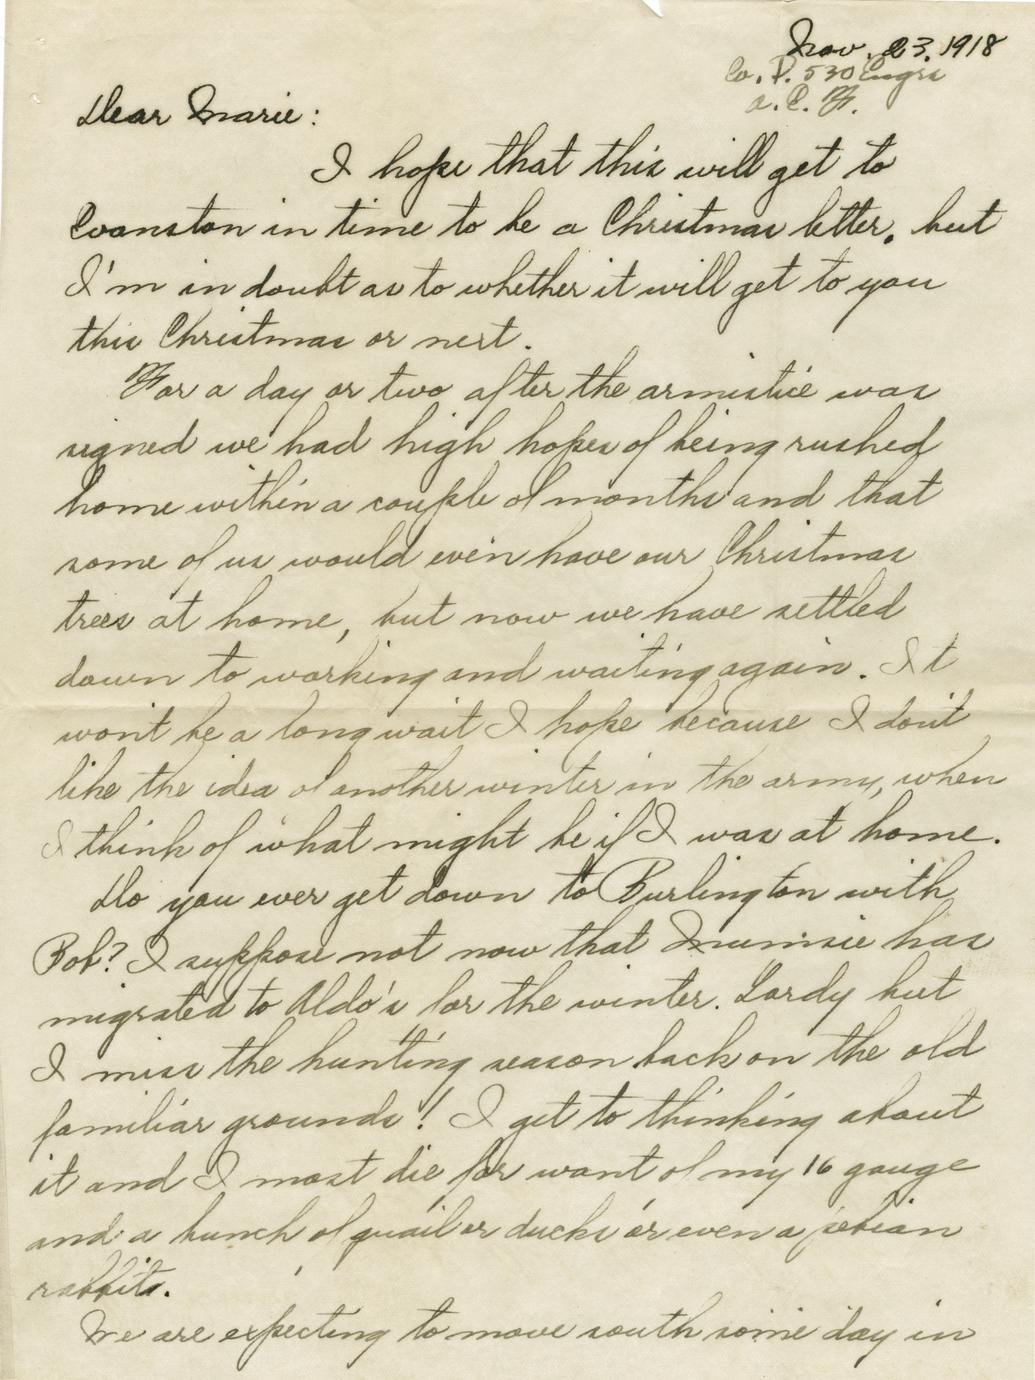 Nov. 23. 1918
Co. P. 530 Engrs
A. E. F.
Dear Marie:
I hope that this will get to
Evanston in time to be a Christmas letter, but
I'm in doubt as to whether it will get to you
this Christmas or next.
For a day or two after the armistice was
signed we had high hopes of being rushed
home within a couple of months and that
some of us would even have our Christmas
trees at home, but now we have settled
down to working and waiting again. It
won't be a long wait I hope because I don't
like the idea of another winter in the army, when
I think of what might be if I was at home.
Do you ever get down to Burlington with
Bob? I suppose not now that Mumsie has
migrated to Aldo's for the winter. Lordy but
I miss the hunting season back on the old
familiar grounds! I get to thinking about
it and I most die for want of my 16 gauge
and a bunch of quail or ducks or even a
rabbits.
We are expecting to move south some day in